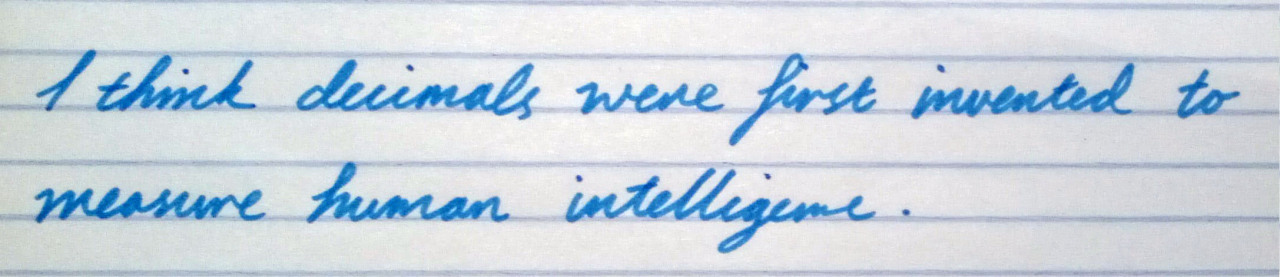 I think decimals were first invented to
measure human intelligence.